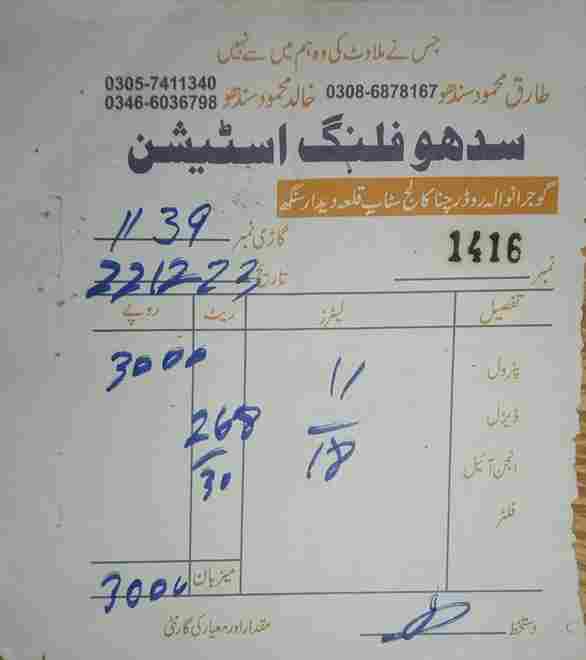 جس نے ملاوٹ کی وہ ہم میں سے نہیں
طارق محمود سندھو 0308-6878167 خالد محمود سندھو 0305-7411340
0346-6036798
سدھو فلنگ اسٹیشن
گوجرانوالہ روڈ رچنا کالج سٹاپ قلعہ دیدار سنگھ
نمبر 1416 گاڑی نمبر 1139
تاریخ 221222
تفصیل لیٹرز ریٹ روپے
پٹرول 11 3000
ڈیزل 268
انجن آئیل 18 30
فلٹر
میزبان 3000
دستخط مقدار اور معیار کی گارنٹی